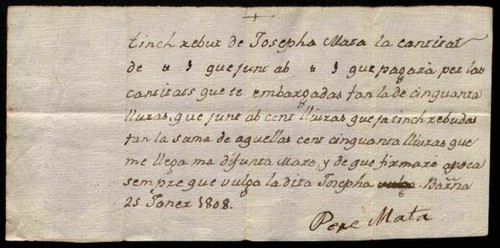 tinch rebut de Josepha Mata la cantitat
de " } que junt ab " } que pagarà per las
cantitats que te embargadas fan la de cinquanta
lliuras, que junt ab cent lliuras que ja tinch rebudas
fan la suma de aquellas cent cinquanta lliuras que
me llega ma difunta Mare, y de que firmaré apoca
sempre que vulga la dita Josepha Barña
25 Janer 1808.
Pere Mata